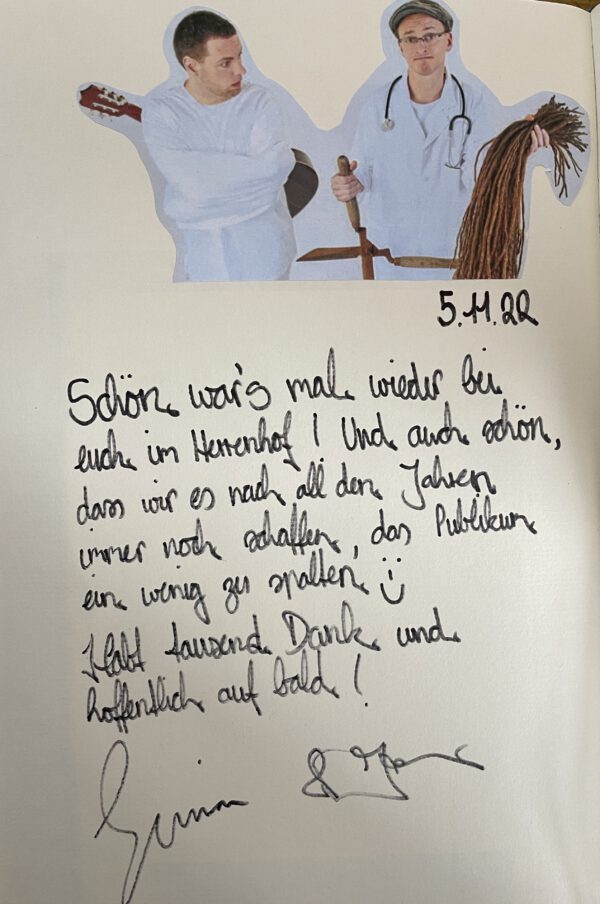 5.11.22
Schön war's mal wieder bei
euch im Herrenhof! Und auch schön,
dass wir es nach all den Jahren
immer noch schaffen, das Publikum
ein wenig zu spalten :)
Habt tausend Dank und
hoffentlich auf bald!